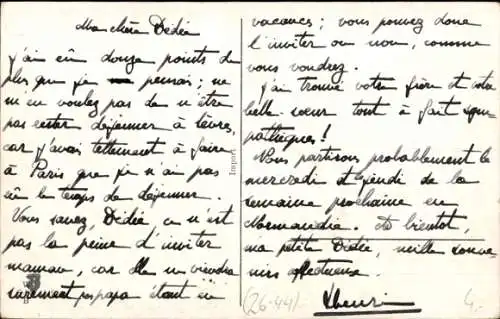 Ma chère Dédée
J'ai eu douze points de
plus que je pensais; ne
m'en voulez pas de n'être
pas rester déjeuner à Sèvres,
car j'avais tellement à faire
à Paris que je n'ai pas
eu le temps de déjeuner.
Vous savez, Dédée ce n'est
pas la peine d'inviter
maman, car elle ne viendra
surement pas papa étant en
vacances; vous pouvez donc
l'inviter ou non, comme
vous voudrez.
J'ai trouvé votre frère et votre
belle-sœur tout à fait sym-
pathiques!
Nous partirons probablement le
mercredi et jeudi de la
semaine prochaine en
Normandie. A bientôt,
ma petite Dédée, meille souve-
nirs affectueux.
Import
(26-44)
4.-